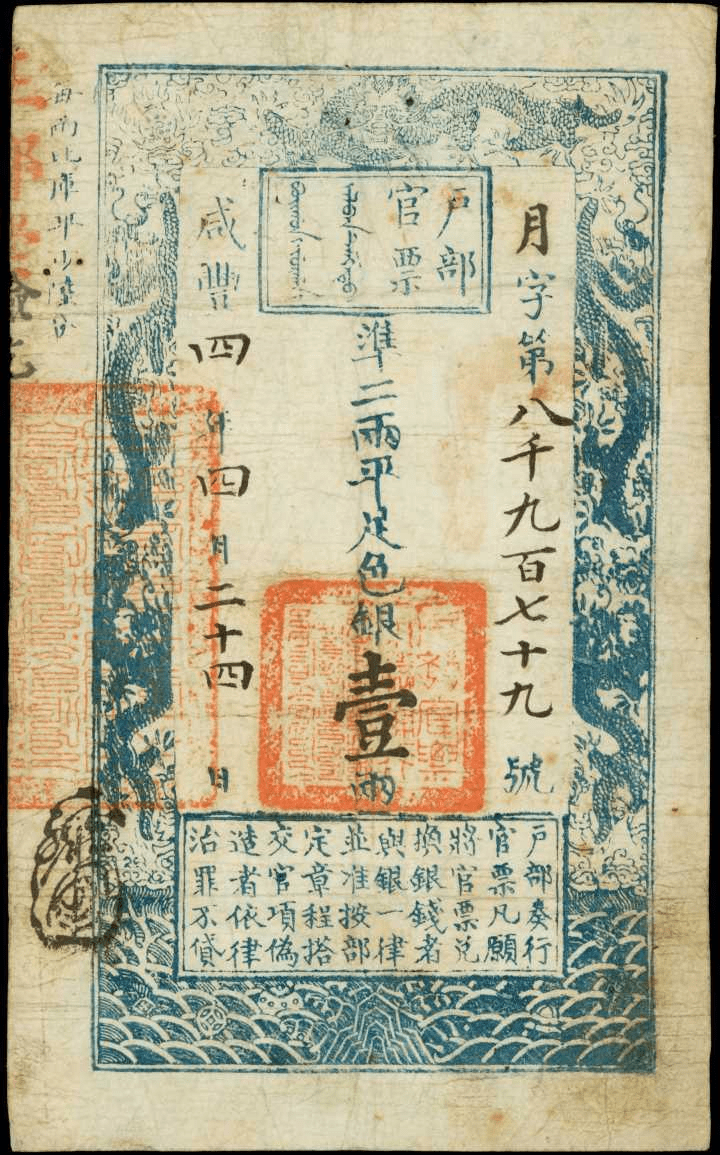 户部
官票
月字第八千九百七十九號
準二兩平足色銀壹兩
咸豐四年四月二十四日
户部奏行
官票凡願
將官票兌
換銀錢者
與銀一律
並准按部
定章程搭
交官項偽
造者依律
治罪不貸
每兩比庫平少陸分